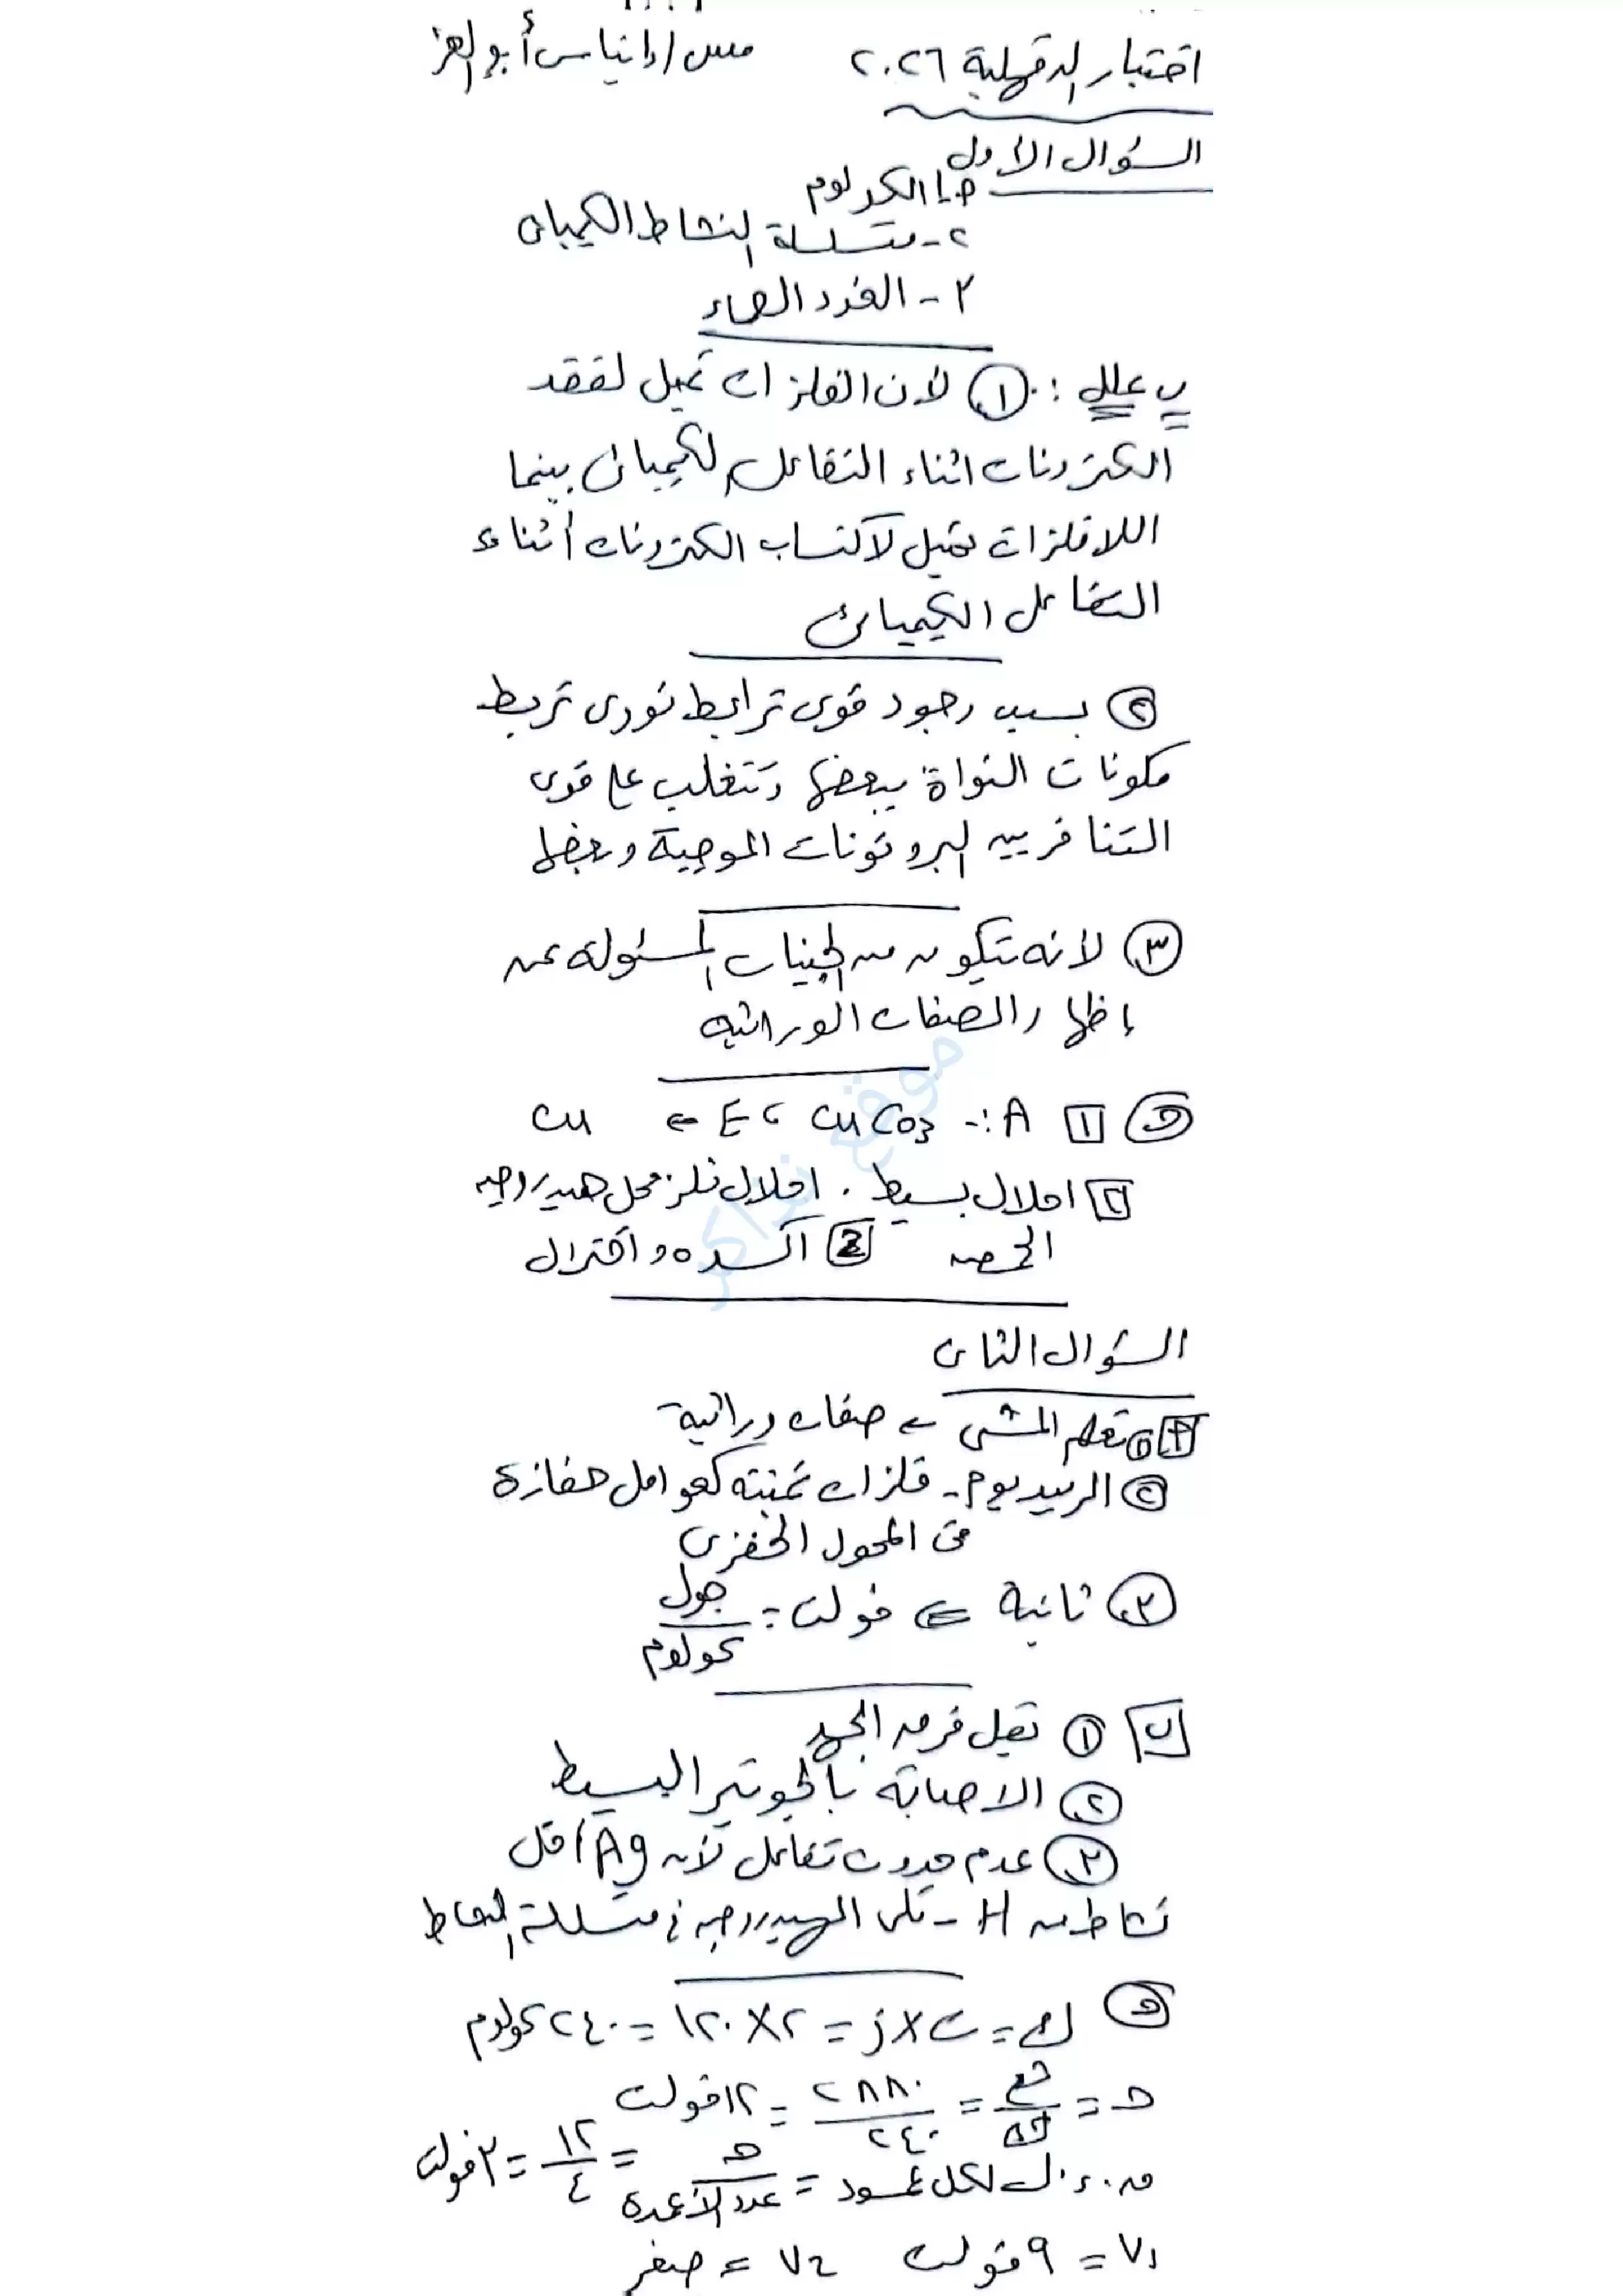 اختبار الدقهلية ٢٠٢٦ مس/إيناس أبو العز
السؤال الأول
١- الكولوم
٢- متسلسلة النشاط الكيميائى
٣- الغدد الصماء
ب علل: ١ لأن الفلزات تميل لفقد
الكترونات اثناء التفاعل الكيميائى بينما
اللافلزات تميل لاكتساب الكترونات أثناء
التفاعل الكيميائى
٢ بسبب وجود قوى ترابط نووى تربط
مكونات النواة ببعضها وتتغلب على قوى
التنافر بين البروتونات الموجبة وبعضها
٣ لأنه تتكون من الجينات المسئولة عن
إظهار الصفات الوراثية
ج ١ A :- CuCO3 ، E = Cu
٢ احلال بسيط . احلال فلز محل هيدروجين
الحمض 2 اكسده واختزال
السؤال الثانى
أ ١ تعلم المشى ← صفات وراثية
٢ الرديوم - فلزات ثمينة كعوامل حفازة
فى المحول الحفزى
٣ ثانية ⇐ فولت = جول / كولوم
ب ١ تقل فرق الجهد
٢ الاصابة بالجويتر البسيط
٣ عدم حدوث تفاعل لأن Ag اقل
نشاط من H - تلى الهيدروجين فى متسلسلة النشاط
ج ك = ت × ز = ٢ × ١٢٠ = ٢٤٠ كولوم
جـ = شغ / ك = ٢٨٨٠ / ٢٤٠ = ١٢ فولت
ق.د.ك لكل عمود = جـ / عدد الأعمدة = ١٢ / ٤ = ٣ فولت
V1 = ٩ فولت V2 = صفر
موقع ذاكر